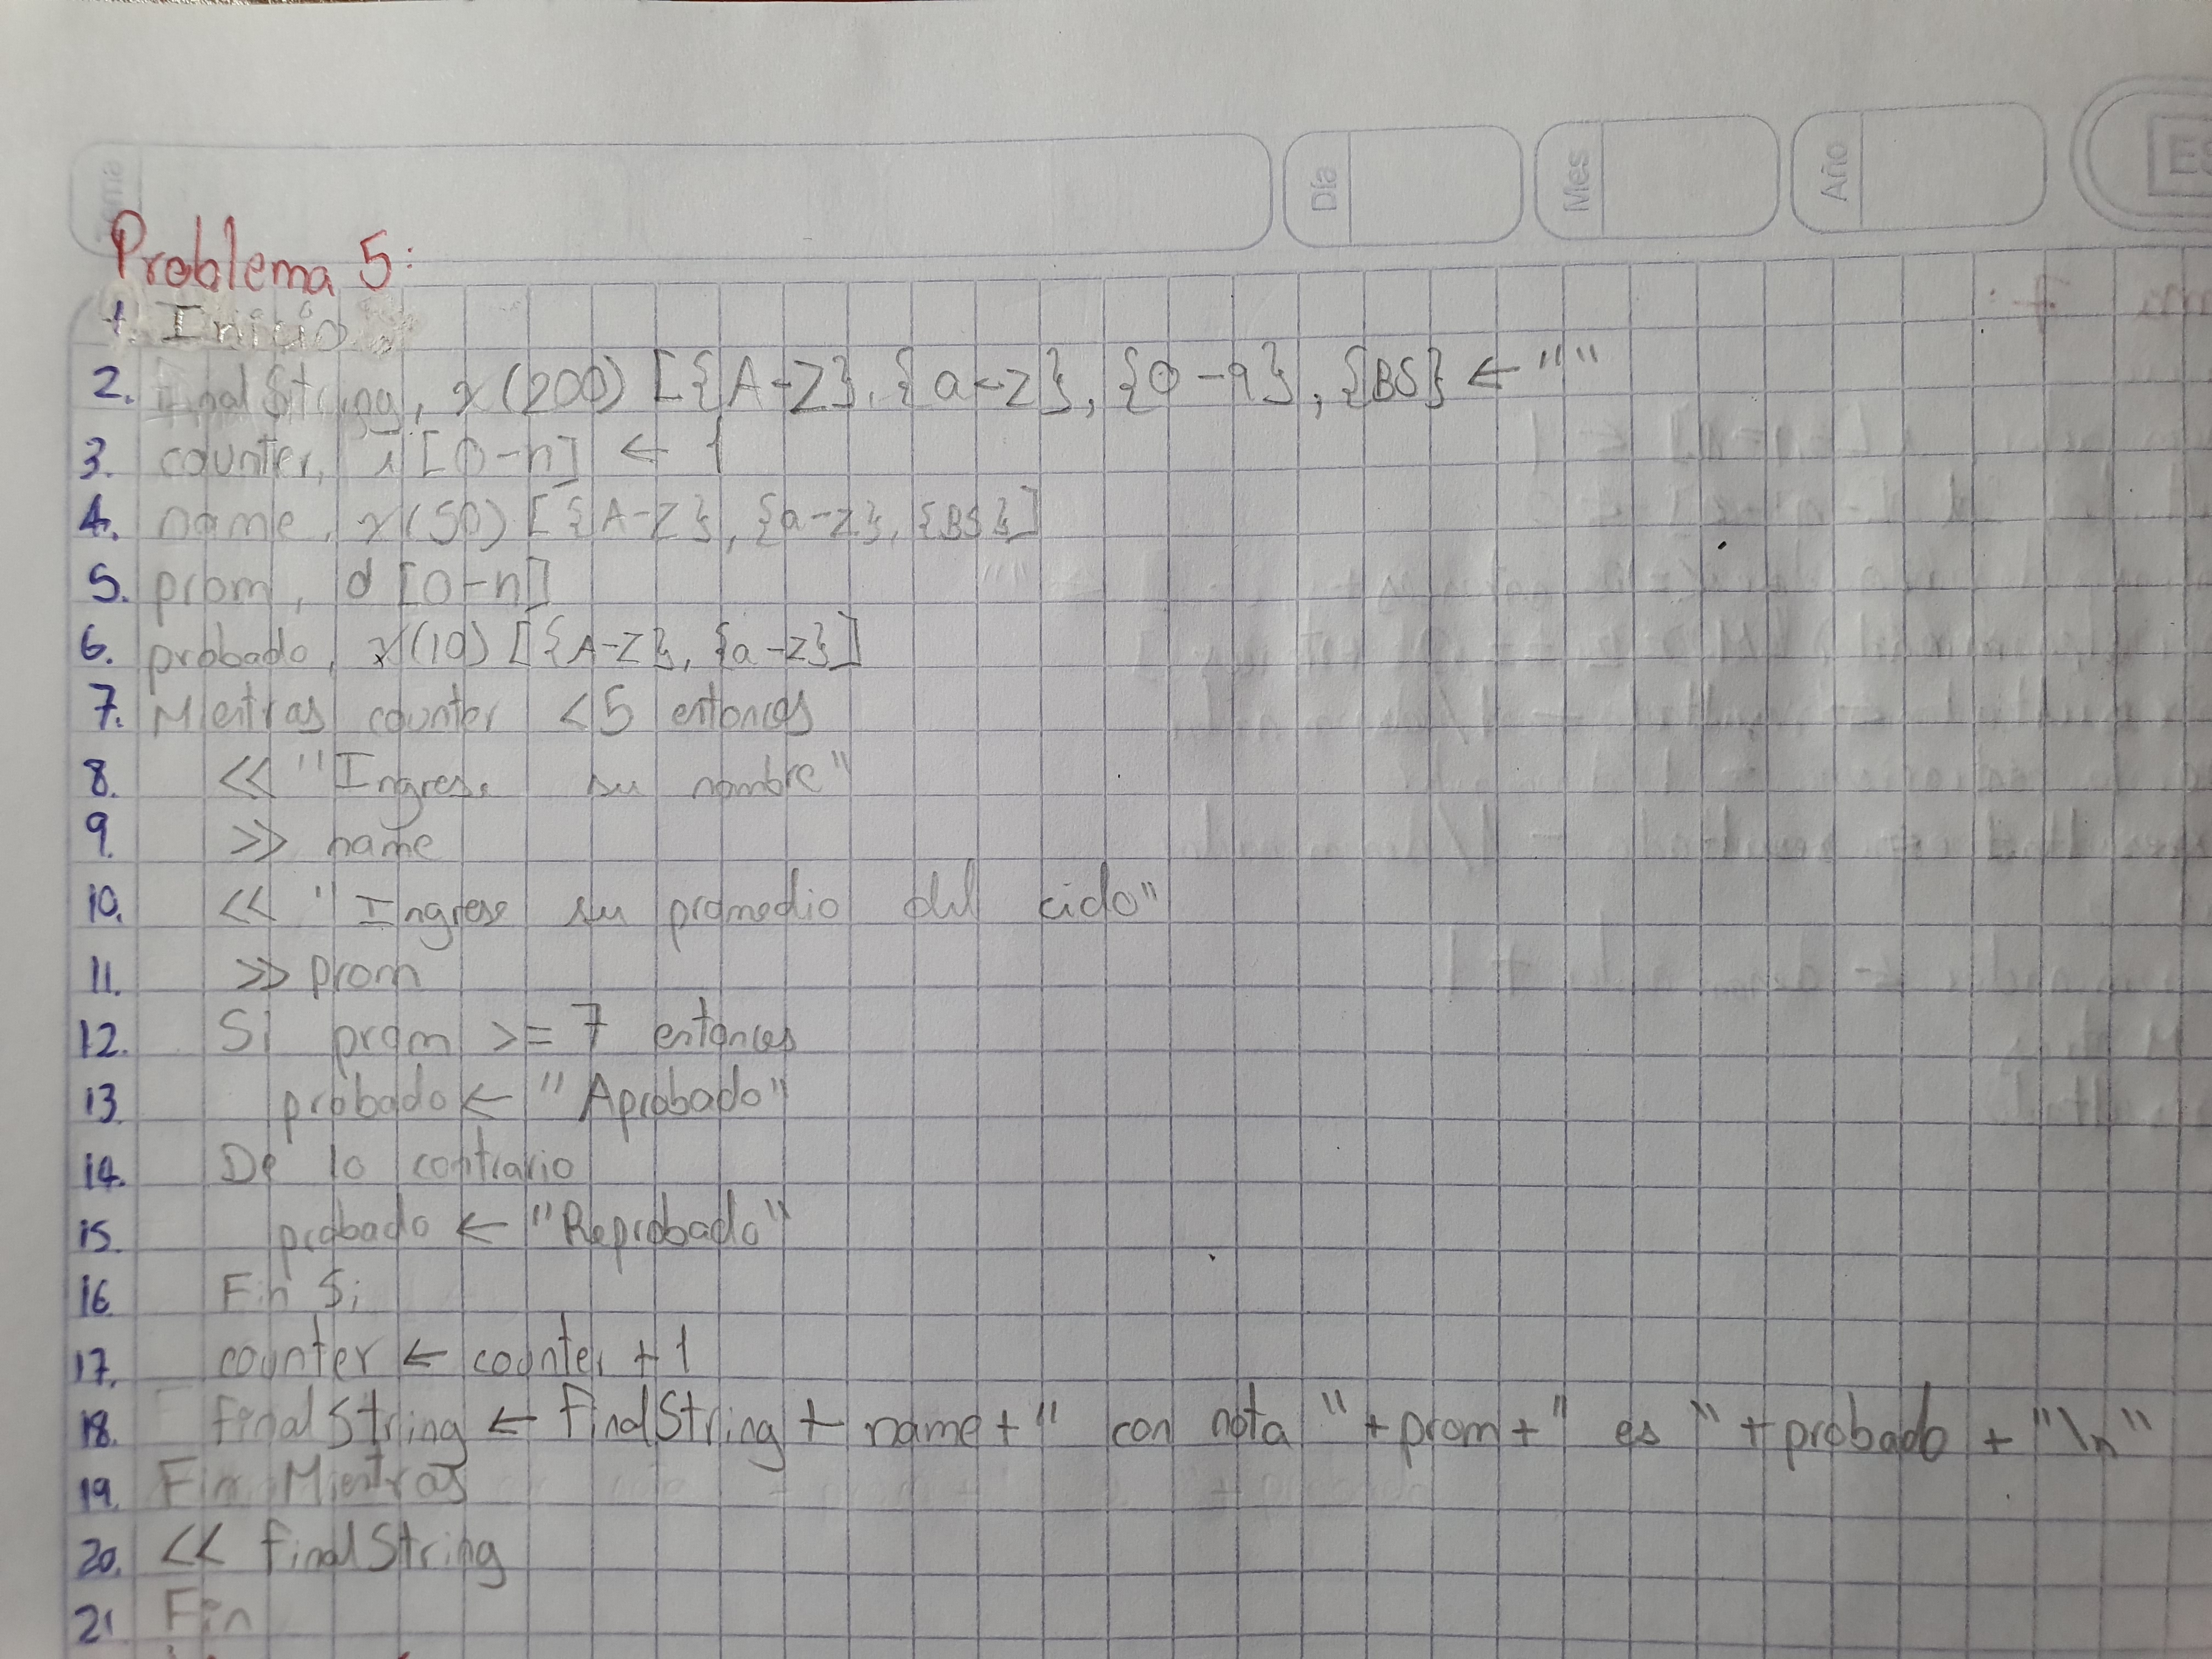 Día
Mes
Año
Problema 5:
1. Inicio
2. finalString, x(200) [{A-Z}, {a-z}, {0-9}, {BS} ← ""
3. counter, i [0-n] ← 1
4. name, x(50) [{A-Z}, {a-z}, {BS}]
5. prom, d [0-n]
6. probado, x(10) [{A-Z}, {a-z}]
7. Mientras counter <5 entonces
8. << "Ingrese su nombre"
9. >> name
10. << "Ingrese su promedio del ciclo"
11. >> prom
12. Si prom >= 7 entonces
13. probado ← "Aprobado"
14. De lo contrario
15. probado ← "Reprobado"
16. Fin Si
17. counter ← counter + 1
18. finalString ← finalString + name + " con nota " + prom + " es " + probado + "\n"
19. Fin Mientras
20. << finalString
21 Fin